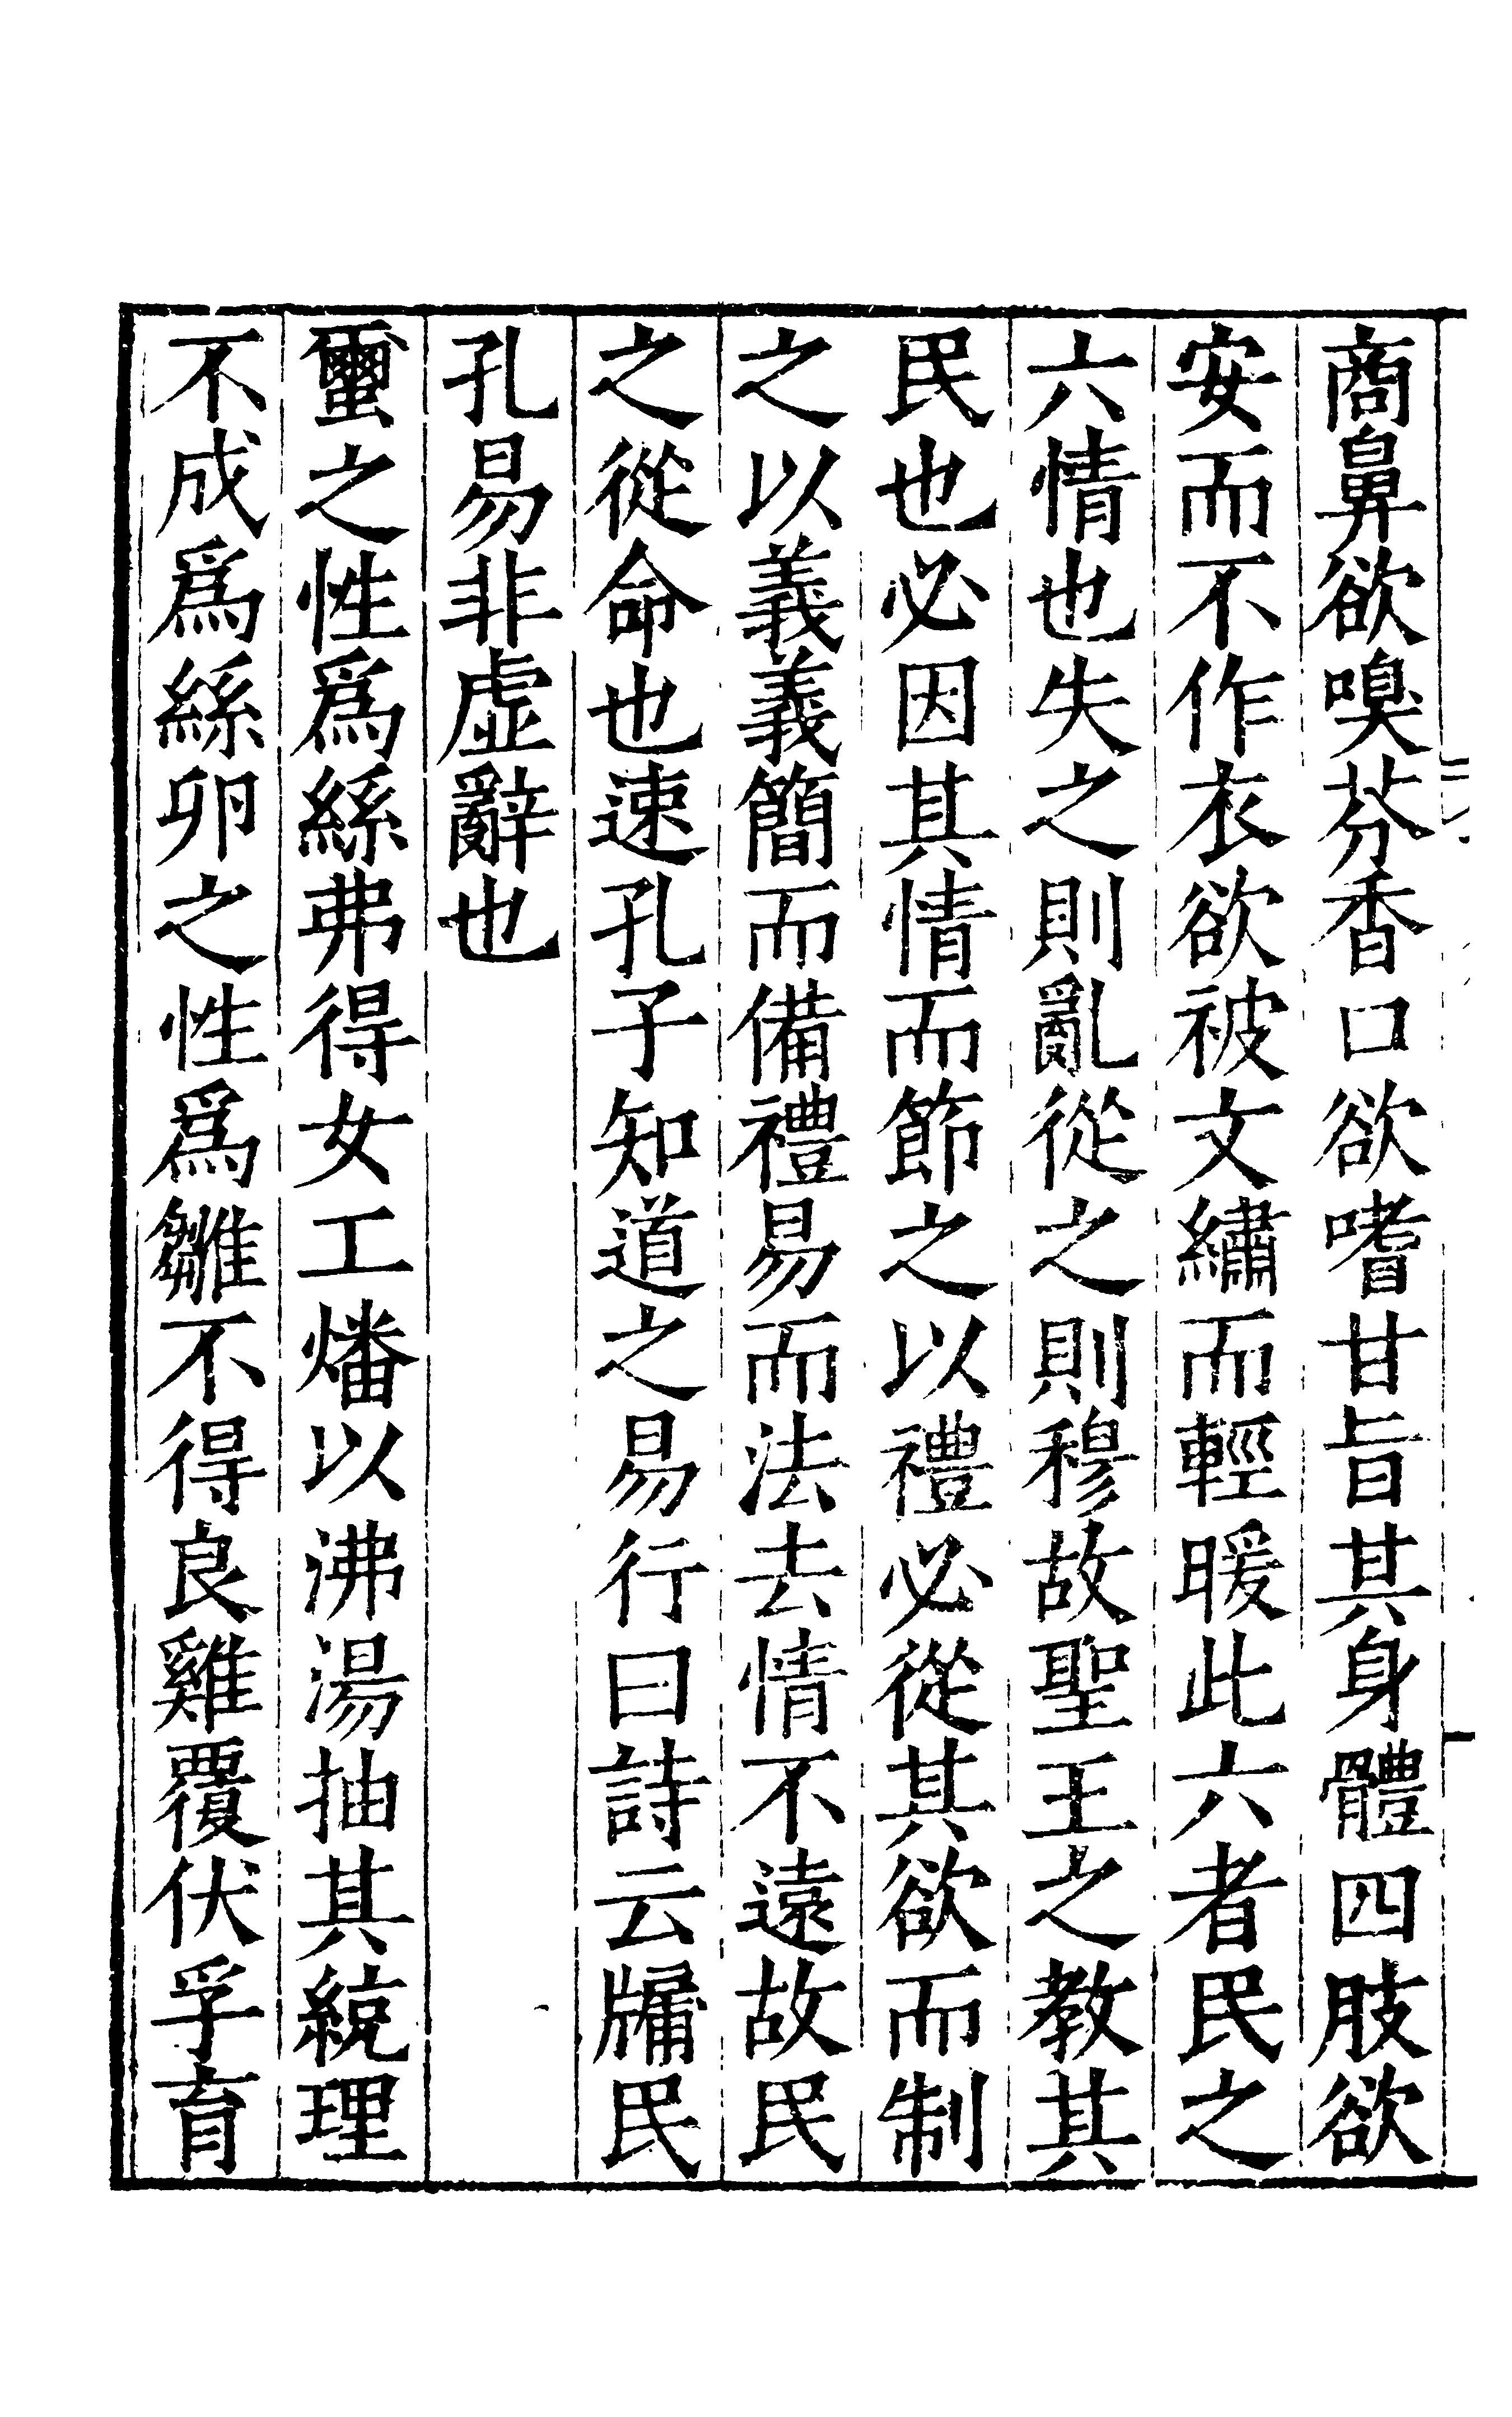 商鼻欲嗅芬香口欲嗜甘旨其身體四肢欲
安而不作衣欲被文繡而輕暖此六者民之
六情也失之則亂從之則穆故聖王之教其
民也必因其情而節之以禮必從其欲而制
之以義義簡而備禮易而法去情不遠故民
之從命也速孔子知道之易行曰詩云牖民
孔易非虛辭也
蠒之性爲絲弗得女工燔以沸湯抽其統理
不成爲絲卵之性爲雛不得良雞覆伏孚育